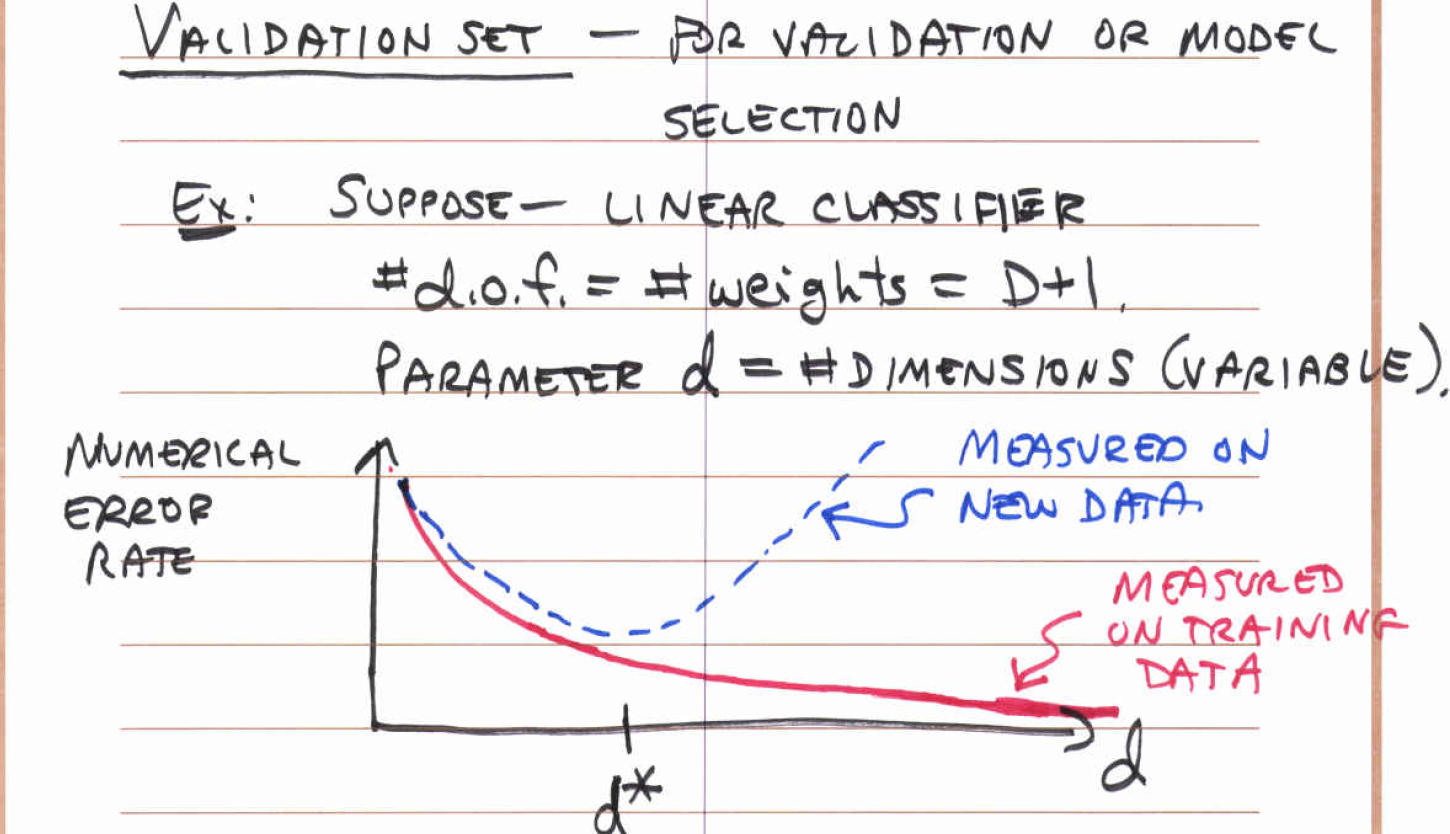 VALIDATION SET — FOR VALIDATION OR MODEL
SELECTION
Ex: SUPPOSE — LINEAR CLASSIFIER
#d.o.f. = # weights = D+1.
PARAMETER d = # DIMENSIONS (VARIABLE).
NUMERICAL
ERROR
RATE
MEASURED ON
NEW DATA
MEASURED
ON TRAINING
DATA
d
d*